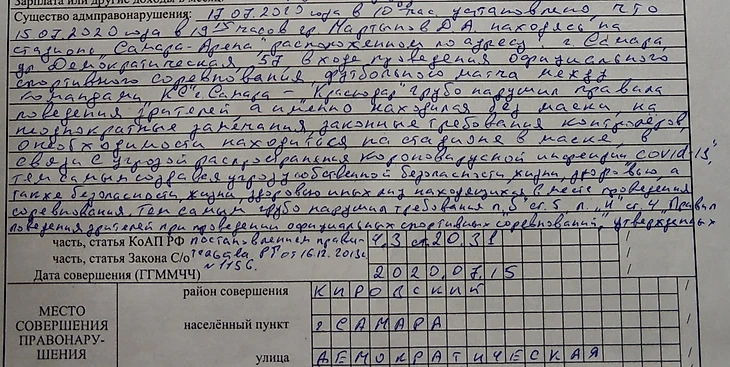 Зарплата или другие доходы в месяц:
Существо адмправонарушения: 17.07.2020 года в 10 час установлено что
15.07.2020 года в 19 часов гр. Мартынов Д.А. находясь на
стадионе "Самара-Арена" расположенном по адресу: г Самара,
ул. Демократическая, 57 в ходе проведения официального
спортивного соревнования футбольного матча между
командами КС "г. Самара - Краснодар" грубо нарушил правила
поведения зрителей, а именно находился без маски, на
неоднократные замечания, законные требования контролёров,
о необходимости находиться на стадионе в маске, в
связи с угрозой распространения короновирусной инфекции COVID-19,
тем самым создавал угрозу собственной безопасности, жизни, здоровью, а
также безопасности, жизни, здоровью иных лиц находящихся в месте проведения
соревнования, тем самым грубо нарушил требования п. 5 ст. 4 "Правил
поведения зрителей при проведении официальных спортивных соревнований", утвержденных
часть, статья КоАП РФ постановлением прави- ч.3 ст.20.31
часть, статья Закона С/о тельства РФ от 16.12.2013г. /
Дата совершения (ГГММЧЧ) № 1156. 2020.07.15
МЕСТО СОВЕРШЕНИЯ ПРАВОНАРУ- ШЕНИЯ
район совершения КИРОВСКИЙ /
населённый пункт г САМАРА /
улица ДЕМОКРАТИЧЕСКАЯ /